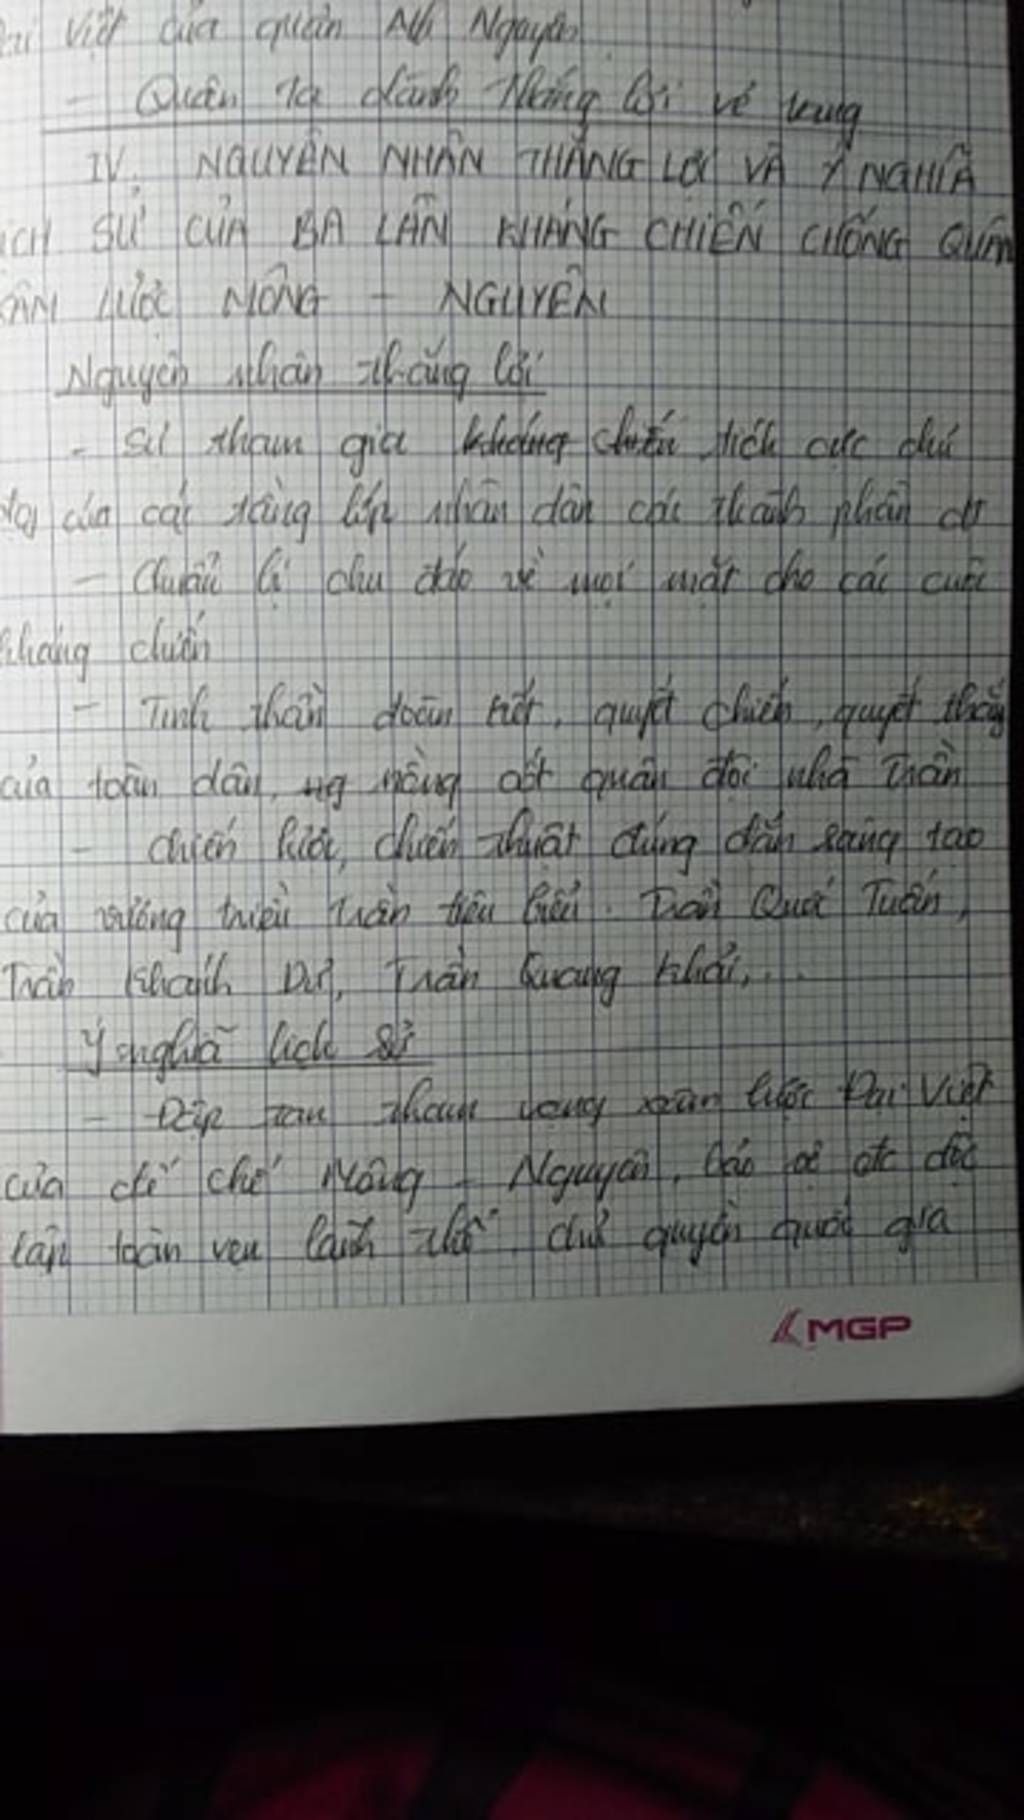 Việt của quân Ng Nguyên
- Quân ta dành thắng lợi vẻ vang
IV. NGUYÊN NHÂN THẮNG LỢI VÀ Ý NGHĨA
ỊCH SỬ CỦA BA LẦN KHÁNG CHIẾN CHỐNG QUÂN
ÂM LƯỢC MÔNG - NGUYÊN
Nguyên nhân thắng lợi
- Sự tham gia kháng chiến tích cực chủ
của các tầng lớp nhân dân các thành phần
- Chuẩn bị chu đáo về mọi mặt cho các cuộc
kháng chiến
- Tinh thần đoàn kết, quyết chiến, quyết thắng
của toàn dân, ng nòng cốt quân đội nhà Trần
- chiến lược, chiến thuật đúng đắn sáng tạo
của vương triều Trần tiêu biểu: Trần Quốc Tuấn,
Trần Khánh Dư, Trần Quang Khải,...
Ý nghĩa lịch sử
- Đập tan tham vọng xâm lược Đại Việt
của đế chế Mông - Nguyên, bảo vệ đc độc
lập toàn vẹn lãnh thổ, chủ quyền quốc gia
MGP